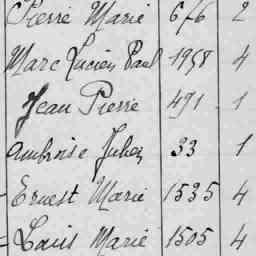 Pierre Marie 676 2
Marc Lucien Paul 1958 4
Jean Pierre 491 1
Ambroise Julien 33 1
Ernest Marie 1535 4
Louis Marie 1505 4